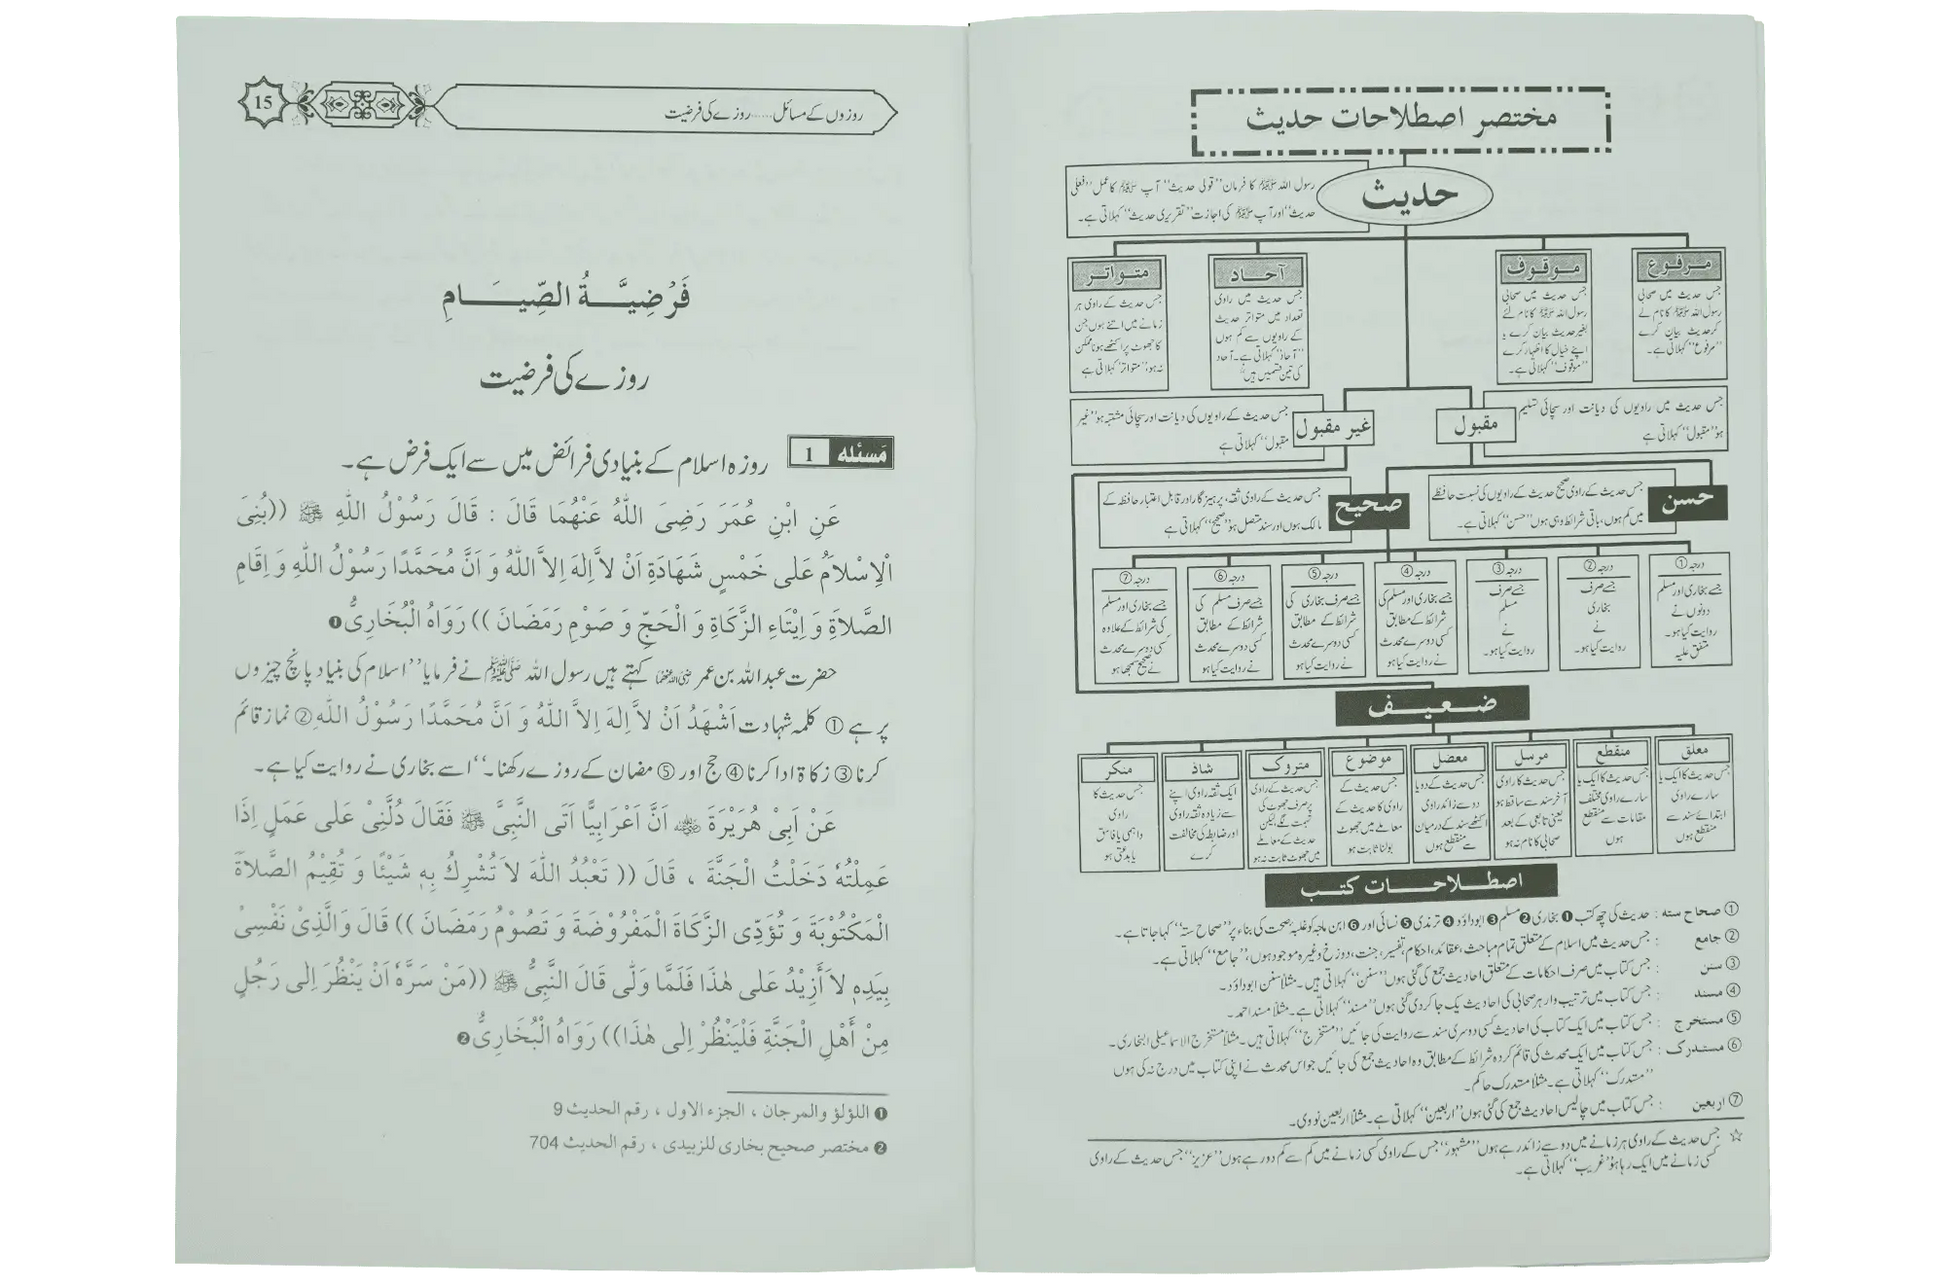 مختصر اصطلاحات حدیث
حدیث
رسول اللہ ﷺ کا فرمان ”قولی حدیث“ آپ ﷺ کا عمل ”فعلی
حدیث“ اور آپ ﷺ کی اجازت ”تقریری حدیث“ کہلاتی ہے۔
مرفوع
جس حدیث میں صحابی
رسول اللہ ﷺ کا نام لے
کر حدیث بیان کرے
”مرفوع“ کہلاتی ہے۔
موقوف
جس حدیث میں صحابی
رسول اللہ ﷺ کا نام لئے
بغیر حدیث بیان کرے یا
اپنے خیال کا اظہار کرے
”موقوف“ کہلاتی ہے۔
آحاد
جس حدیث میں راوی
تعداد میں متواتر حدیث
کے راویوں سے کم ہوں
”آحاد“ کہلاتی ہے۔ آحاد
کی تین قسمیں ہیں
متواتر
جس حدیث کے راوی ہر
زمانے میں اتنے ہوں جن
کا جھوٹ پر اکٹھے ہونا ممکن
نہ ہو، ”متواتر“ کہلاتی ہے
مقبول
جس حدیث میں راویوں کی دیانت اور سچائی تسلیم
ہو ”مقبول“ کہلاتی ہے
غیر مقبول
جس حدیث کے راویوں کی دیانت اور سچائی مشتبہ ہو ”غیر
مقبول“ کہلاتی ہے
حسن
جس حدیث کے راوی صحیح حدیث کے راویوں کی نسبت حافظے
میں کم ہوں، باقی شرائط وہی ہوں ”حسن“ کہلاتی ہے۔
صحیح
جس حدیث کے راوی ثقہ، پرہیزگار اور قابل اعتبار حافظہ کے
مالک ہوں اور سند متصل ہو ”صحیح“ کہلاتی ہے
درجہ ①
جسے بخاری اور مسلم
دونوں نے
روایت کیا ہو۔
متفق علیہ
درجہ ②
جسے صرف
بخاری
نے
روایت کیا ہو۔
درجہ ③
جسے صرف
مسلم
نے
روایت کیا ہو۔
درجہ ④
جسے بخاری اور مسلم کی
شرائط کے مطابق
کسی دوسرے محدث
نے روایت کیا ہو
درجہ ⑤
جسے صرف بخاری کی
شرائط کے مطابق
کسی دوسرے محدث
نے روایت کیا ہو
درجہ ⑥
جسے صرف مسلم کی
شرائط کے مطابق
کسی دوسرے محدث
نے روایت کیا ہو
درجہ ⑦
جسے بخاری اور مسلم
کی شرائط کے علاوہ
کسی دوسرے محدث
نے صحیح سمجھا ہو
ضعیف
معلق
جس حدیث کا ایک یا
سارے راوی
ابتدائے سند سے
منقطع ہوں
منقطع
جس حدیث کا ایک یا
سارے راوی مختلف
مقامات سے منقطع
ہوں
مرسل
جس حدیث کا راوی
آخر سند سے ساقط ہو
یعنی تابعی کے بعد
صحابی کا نام نہ ہو
معضل
جس حدیث کے دو یا
دو سے زائد راوی
اکٹھے سند کے درمیان
سے منقطع ہوں
موضوع
جس حدیث کے
راوی کا حدیث کے
معاملے میں جھوٹ
بولنا ثابت ہو
متروک
جس حدیث کے راوی
پر صرف جھوٹ کی
تہمت لگے لیکن
حدیث کے معاملے
میں جھوٹ ثابت نہ ہو
شاذ
ایک ثقہ راوی اپنے
سے زیادہ ثقہ راوی
اور ضابطہ کی مخالفت
کرے
منکر
جس حدیث کا
راوی
واہمی یا فاسق
یا بدعتی ہو
اصطلاحات کتب
① صحاح ستہ : حدیث کی چھ کتب ❶ بخاری ❷ مسلم ❸ ابوداؤد ❹ ترمذی ❺ نسائی اور ❻ ابن ماجہ کو غلبہ صحت کی بناء پر ”صحاح ستہ“ کہا جاتا ہے۔
② جامع : جس حدیث میں اسلام کے متعلق تمام مباحث، عقائد، احکام، تفسیر، جنت، دوزخ وغیرہ موجود ہوں، ”جامع“ کہلاتی ہے۔
③ سنن : جس کتاب میں صرف احکامات کے متعلق احادیث جمع کی گئی ہوں ”سنن“ کہلاتی ہیں۔ مثلاً سنن ابوداؤد۔
④ مسند : جس کتاب میں ترتیب وار ہر صحابی کی احادیث یک جا کر دی گئی ہوں ”مسند“ کہلاتی ہے۔ مثلاً مسند احمد۔
⑤ مستخرج : جس کتاب میں ایک کتاب کی احادیث کسی دوسری سند سے روایت کی جائیں ”مستخرج“ کہلاتی ہیں۔ مثلاً مستخرج الاسماعیلی البخاری۔
⑥ مستدرک : جس کتاب میں ایک محدث کی قائم کردہ شرائط کے مطابق وہ احادیث جمع کی جائیں جو اس محدث نے اپنی کتاب میں درج نہ کی ہوں
”مستدرک“ کہلاتی ہے۔ مثلاً مستدرک حاکم۔
⑦ اربعین : جس کتاب میں چالیس احادیث جمع کی گئی ہوں ”اربعین“ کہلاتی ہے۔ مثلاً اربعین نووی۔
☆ جس حدیث کے راوی ہر زمانے میں دو سے زائد رہے ہوں ”مشہور“ جس کے راوی کسی زمانے میں کم سے کم دو رہے ہوں ”عزیز“ جس حدیث کے راوی
کسی زمانے میں ایک رہا ہو ”غریب“ کہلاتی ہے۔
روزوں کے مسائل......روزے کی فرضیت
15
فَرْضِيَّةُ الصِّيَامِ
روزے کی فرضیت
مَسئله 1 روزہ اسلام کے بنیادی فرائض میں سے ایک فرض ہے۔
عَنِ ابْنِ عُمَرَ رَضِىَ اللّٰهُ عَنْهُمَا قَالَ : قَالَ رَسُوْلُ اللّٰهِ ﷺ ((بُنِىَ
الْاِسْلاَمُ عَلٰى خَمْسٍ شَهَادَةِ اَنْ لاَّ اِلٰهَ اِلاَّ اللّٰهُ وَ اَنَّ مُحَمَّدًا رَسُوْلُ اللّٰهِ وَ اِقَامِ
الصَّلاَةِ وَ اِيْتَاءِ الزَّكَاةِ وَ الْحَجِّ وَ صَوْمِ رَمَضَانَ )) رَوَاهُ الْبُخَارِىُّ❶
حضرت عبداللہ بن عمر رضی اللہ عنہما کہتے ہیں رسول اللہ ﷺ نے فرمایا ”اسلام کی بنیاد پانچ چیزوں
پر ہے ① کلمہ شہادت اَشْهَدُ اَنْ لاَّ اِلٰهَ اِلاَّ اللّٰهُ وَ اَنَّ مُحَمَّدًا رَسُوْلُ اللّٰهِ ② نماز قائم
کرنا ③ زکاۃ ادا کرنا ④ حج اور ⑤ مضان کے روزے رکھنا۔“ اسے بخاری نے روایت کیا ہے۔
عَنْ اَبِىْ هُرَيْرَةَ ؓ اَنَّ اَعْرَابِيًّا اَتَى النَّبِىَّ ﷺ فَقَالَ دُلَّنِىْ عَلٰى عَمَلٍ اِذَا
عَمِلْتُهُ دَخَلْتُ الْجَنَّةَ ، قَالَ (( تَعْبُدُ اللّٰهَ لاَ تُشْرِكُ بِهٖ شَيْئًا وَ تُقِيْمُ الصَّلاَةَ
الْمَكْتُوْبَةَ وَ تُؤَدِّى الزَّكَاةَ الْمَفْرُوْضَةَ وَ تَصُوْمُ رَمَضَانَ )) قَالَ وَالَّذِىْ نَفْسِىْ
بِيَدِهٖ لاَ أَزِيْدُ عَلٰى هٰذَا فَلَمَّا وَلّٰى قَالَ النَّبِىُّ ﷺ ((مَنْ سَرَّهُ اَنْ يَنْظُرَ اِلٰى رَجُلٍ
مِنْ أَهْلِ الْجَنَّةِ فَلْيَنْظُرْ اِلٰى هٰذَا)) رَوَاهُ الْبُخَارِىُّ❷
❶ اللؤلؤ والمرجان ، الجزء الاول ، رقم الحديث 9
❷ مختصر صحيح بخارى للزبيدى ، رقم الحديث 704